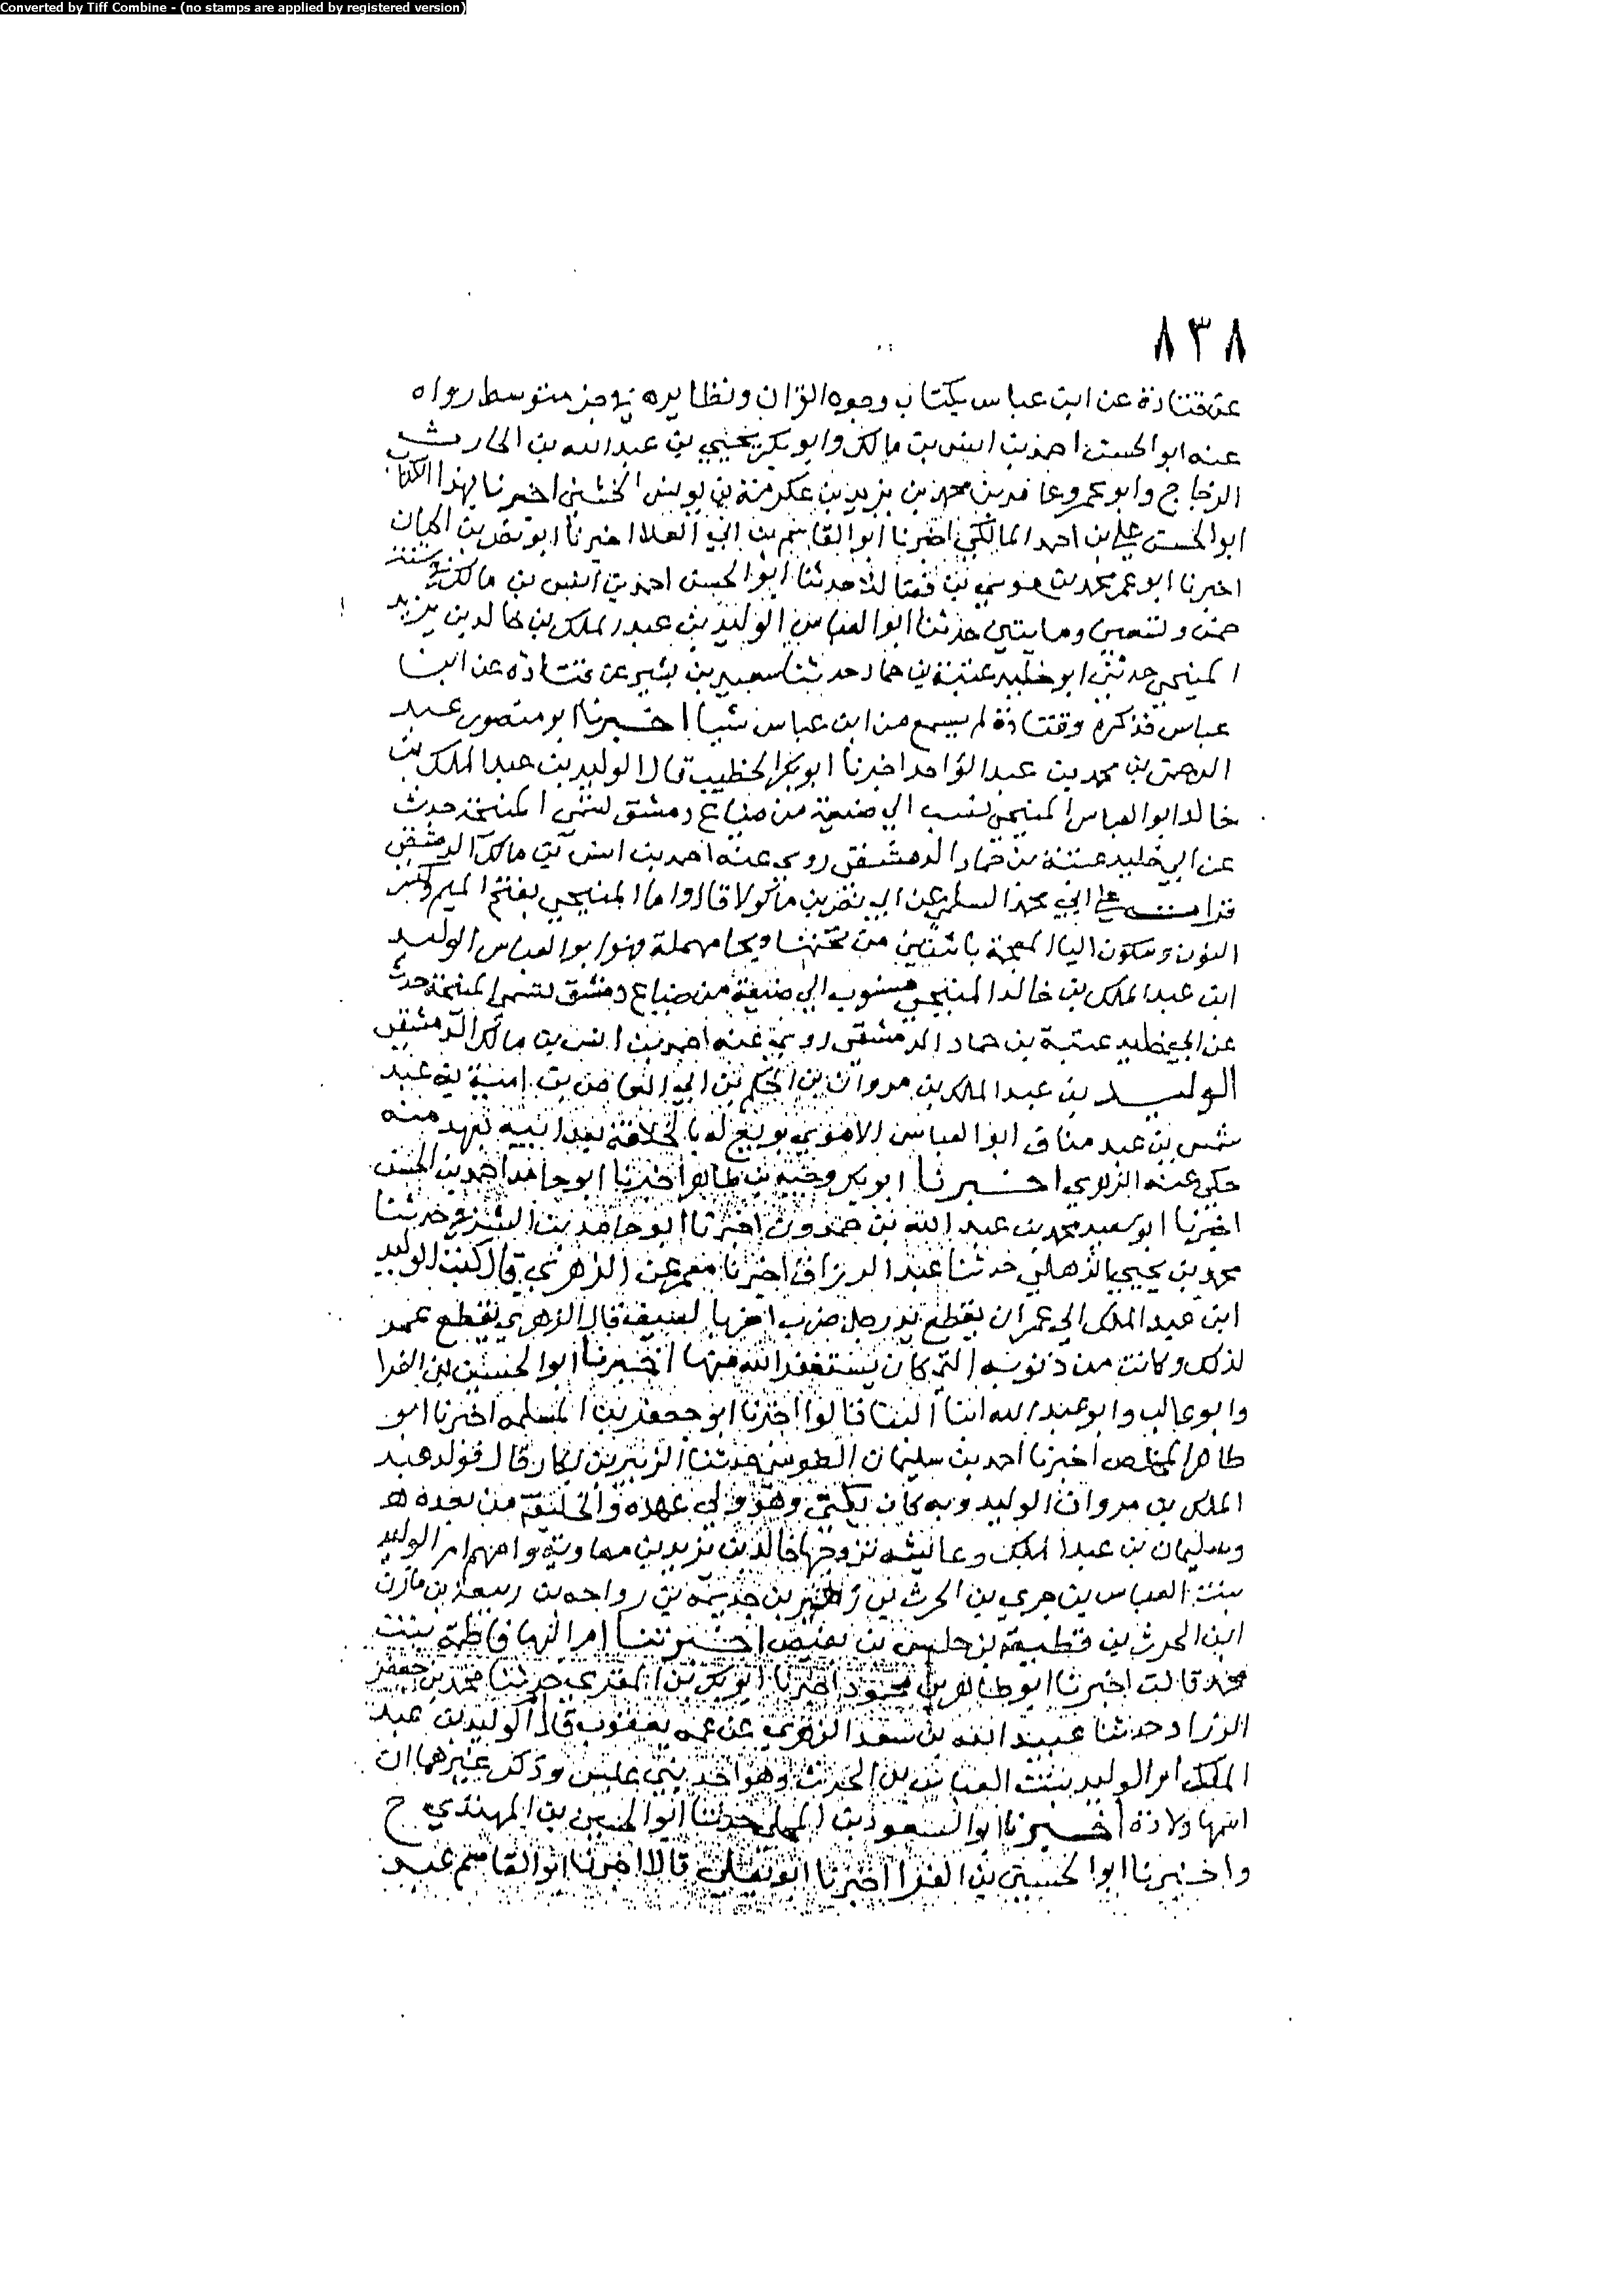 Converted by Tiff Combine - (no stamps are applied by registered version)
٨٣٨
عن قتادة عن ابن عباس بكتاب وجوه القران ونظايره في جز متوسط رواه
عنه ابو الحسن احمد بن انس بن مالك وابو بكر يحيي بن عبد الله بن الحارث
الزجاج وابو عمرو محمد بن يزيد بن عكرمة بن يونس الخشني اخبرنا بهذا الكتاب
ابو الحسن علي بن احمد المالكي اخبرنا ابو القاسم بن ابي العلا اخبرنا ابو نصر بن الجبان
اخبرنا ابو عمر محمد بن موسي بن فضالة حدثنا ابو الحسن احمد بن انس بن مالك في سنة
خمس وتسعين ومايتين حدثنا ابو العباس الوليد بن عبد الملك بن خالد بن يزيد
المنيحي حدثني ابو خليد عتبة بن حماد حدثنا سعيد بن بشير عن قتادة عن ابن
عباس فذكره وقتادة لم يسمع من ابن عباس شيا اخبرنا ابو منصور عبد
الرحمن بن محمد بن عبد الواحد اخبرنا ابو بكر الخطيب قال الوليد بن عبد الملك بن
خالد ابو العباس المنيحي نسب الي ضيعة من ضياع دمشق تسمي المنيحة حدث
عن ابي خليد عتبة بن حماد الدمشقي روي عنه احمد بن انس بن مالك الدمشقي
قرات علي ابي محمد السلمي عن ابي نصر بن ماكولا قال واما المنيحي بفتح الميم وكسر
النون وسكون اليا المعجمة باثنتين من تحتها وبحا مهملة فهو ابو العباس الوليد
ابن عبد الملك بن خالد المنيحي منسوب الي ضيعة من ضياع دمشق تسمي المنيحة حدث
عن ابي خليد عتبة بن حماد الدمشقي روي عنه احمد بن انس بن مالك الدمشقي
الوليد بن عبد الملك بن مروان بن الحكم بن ابي العاص بن امية بن عبد
شمس بن عبد مناف ابو العباس الاموي بويع له بالخلافة بعد ابيه بعهد منه
حكي عنه الزهري اخبرنا ابو بكر وجيه بن طاهر اخبرنا ابو حامد احمد بن الحسن
اخبرنا ابو سعيد محمد بن عبد الله بن حمدون اخبرنا ابو حامد بن الشرقي حدثنا
محمد بن يحيي الذهلي حدثنا عبد الرزاق اخبرنا معمر عن الزهري قال كتب الوليد
ابن عبد الملك الي عمر ان يقطع يد رجل ضرب اخر بالسيف قال الزهري فقطع عمر
لذلك وكانت من ذنوبه التي كان يستغفر الله منها اخبرنا ابو الحسين بن الفرا
وابو غالب وابو عبد الله ابنا البنا قالوا اخبرنا ابو جعفر بن المسلمه اخبرنا ابو
طاهر المخلص اخبرنا احمد بن سليمان الطوسي حدثنا الزبير بن بكار قال فولد عبد
الملك بن مروان الوليد وبه كان يكني وهو ولي عهده والخليفة من بعده
وسليمان بن عبد الملك وعائشه تزوجها خالد بن يزيد بن معاوية وامهم ام الوليد
بنت العباس بن جزي بن الحرث بن زهير بن جذيمة بن رواحه بن ربيعة بن مازن
ابن الحرث بن قطيعة بن عبس بن بغيض اخبرتنا ام البها فاطمة بنت
محمد قالت اخبرنا ابو طاهر بن محمود اخبرنا ابو بكر بن المقري حدثنا محمد بن جعفر
الزراد حدثنا عبيد الله بن سعد الزهري عن عمه يعقوب قال الوليد بن عبد
الملك ام الوليد بنت العباس بن الحرث وهو احد بني عبس وذكر غيرهما ان
اسمها ولادة اخبرنا ابو السعود بن المجلي حدثنا ابو الحسين بن المهتدي ح
واخبرنا ابو الحسين بن الفرا اخبرنا ابو يعلي قالا اخبرنا ابو القاسم عبيد